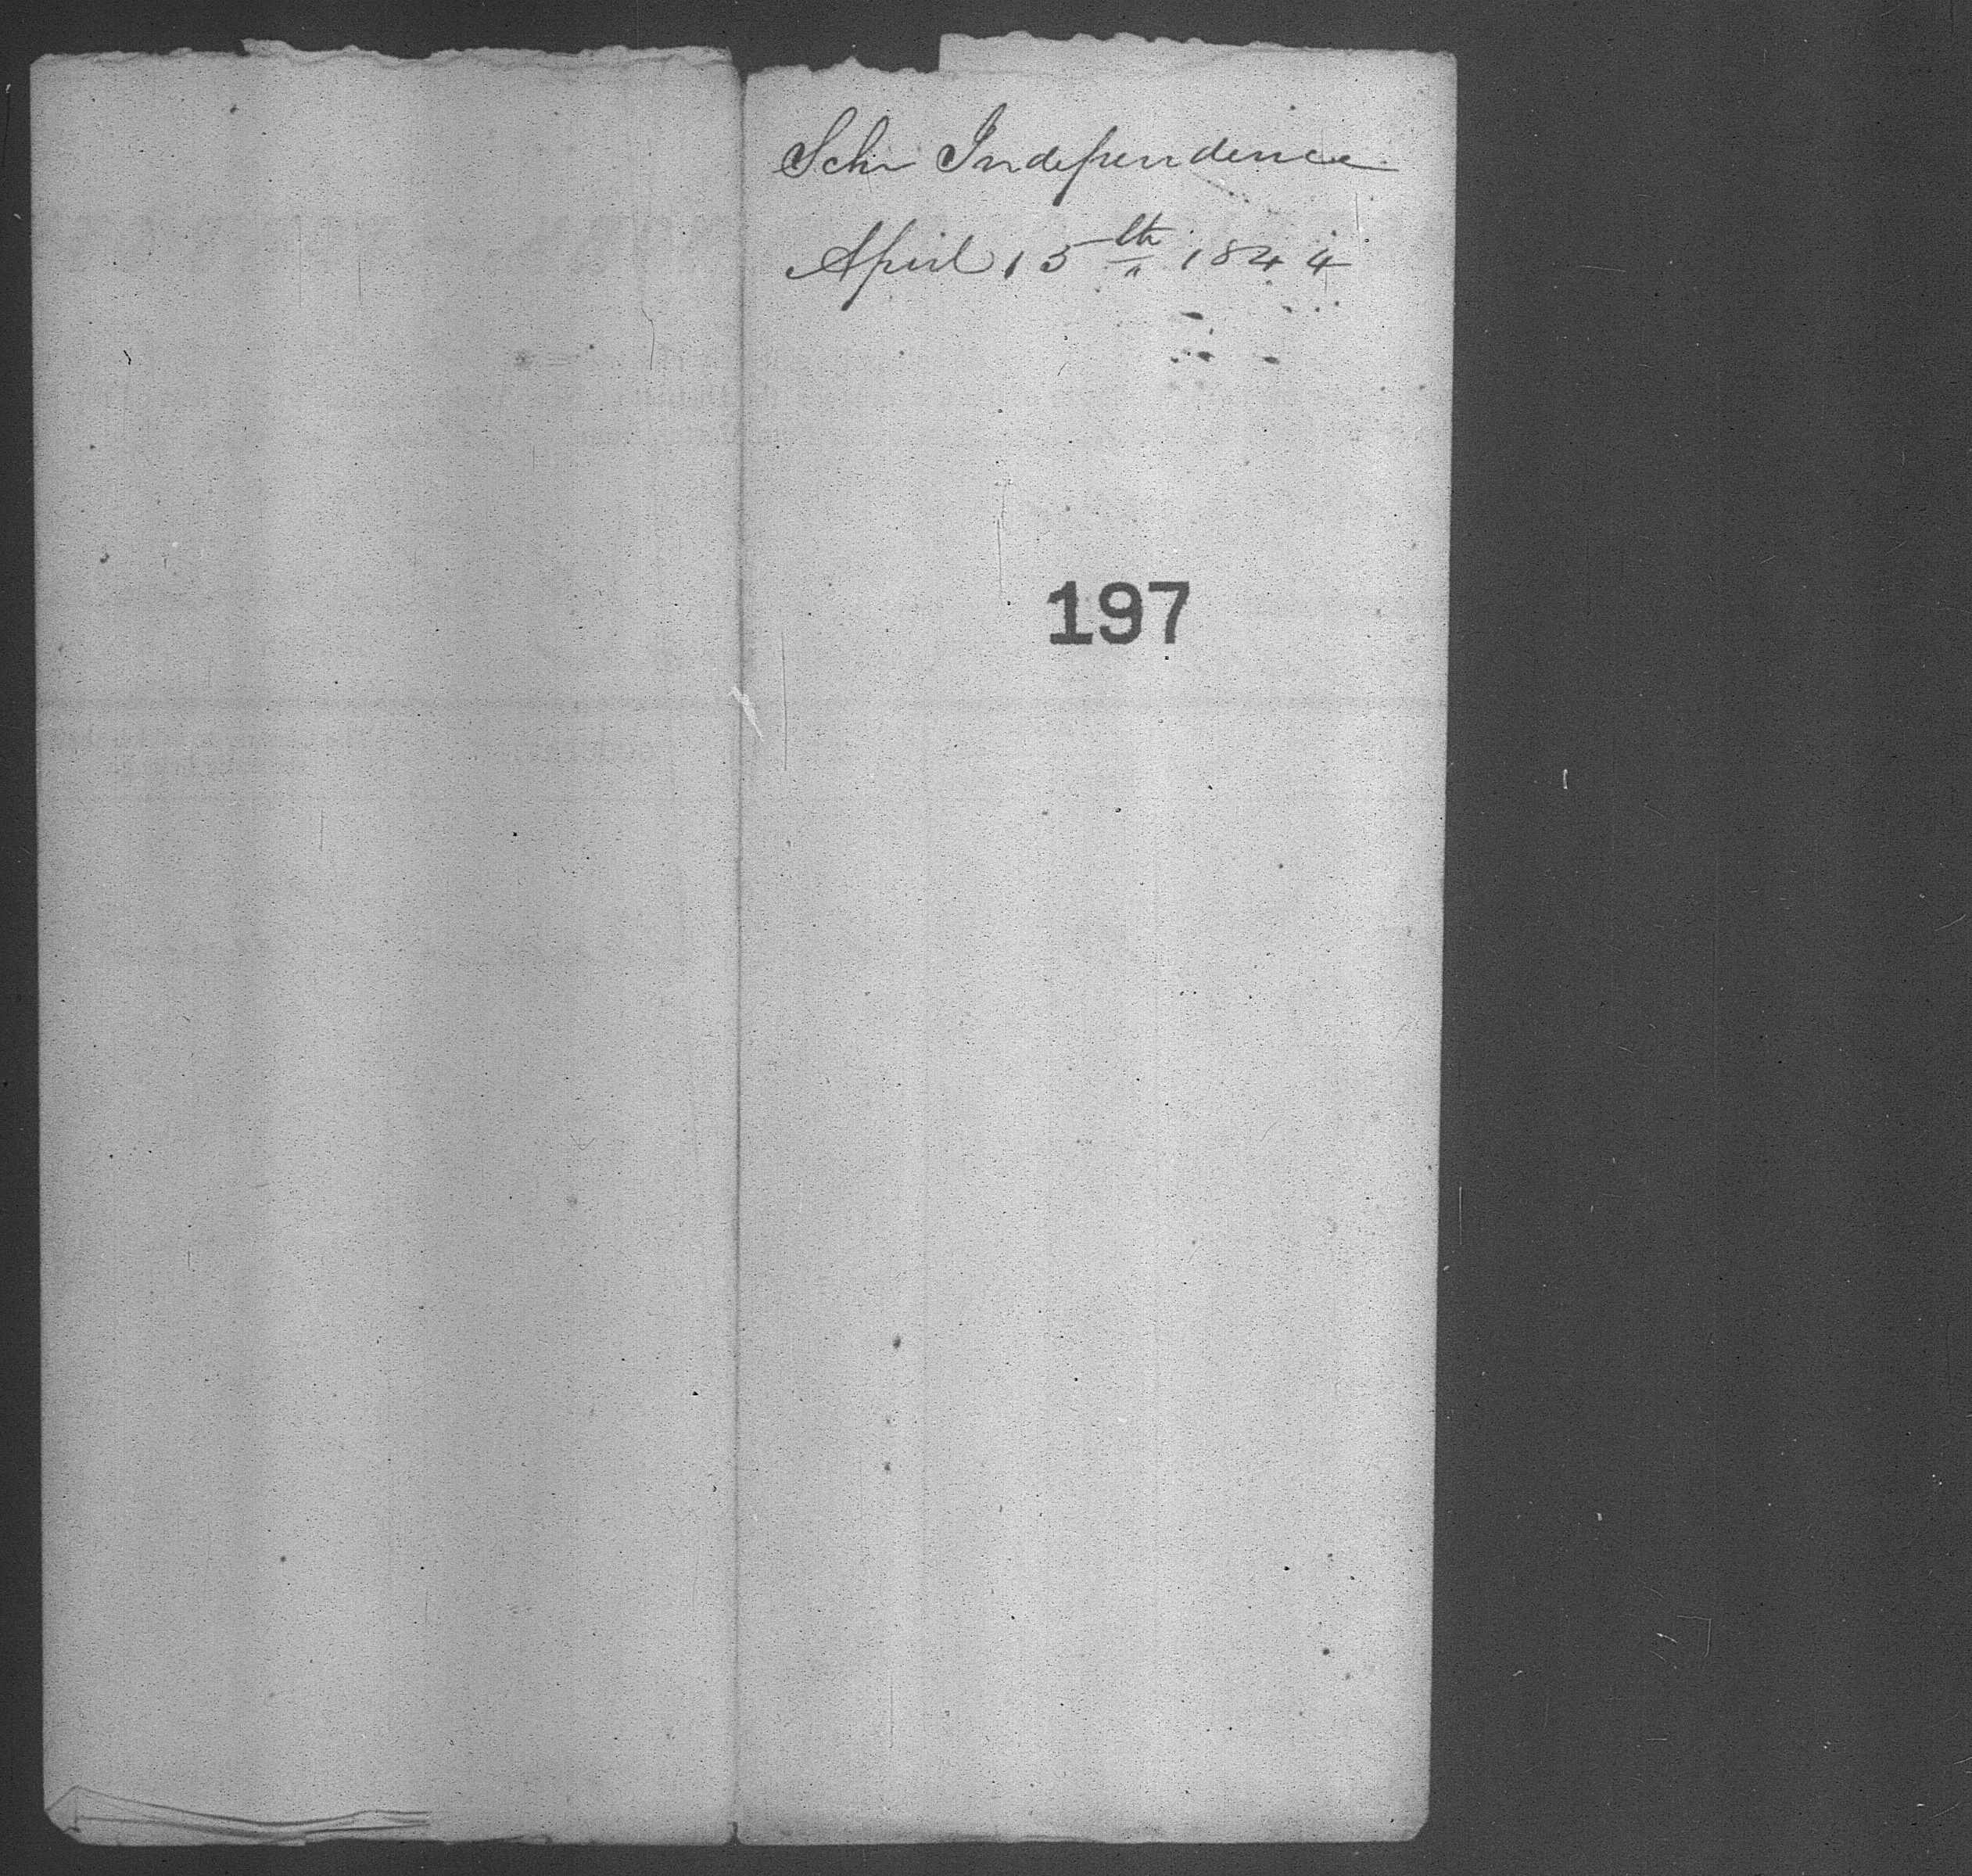 Schr Independence
April 15th 1844
197